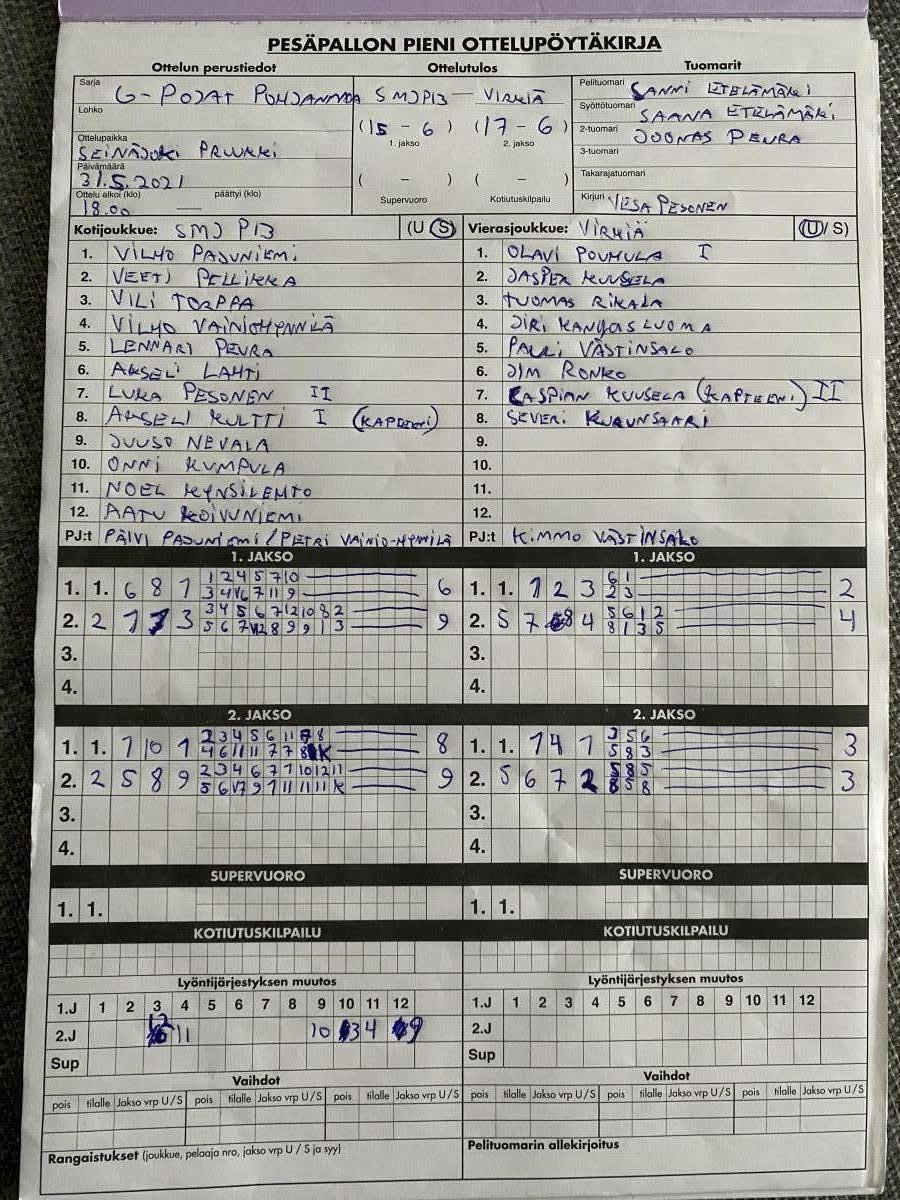 PESÄPALLON PIENI OTTELUPÖYTÄKIRJA
Ottelun perustiedot Ottelutulos Tuomarit
Sarja G-POJAT POHJANMAA SMJ P13 — VIRKIÄ
Pelituomari SANNI ETELÄMÄKI
Lohko
Syöttötuomari SAANA ETELÄMÄKI
(15 - 6) (17 - 6)
1. jakso 2. jakso
2-tuomari JOONAS PEURA
Ottelupaikka SEINÄJOKI PRUUKKI
3-tuomari
Päivämäärä 31.5.2021
( - ) ( - )
Takarajatuomari
Ottelu alkoi (klo) päättyi (klo)
18.00 —
Supervuoro Kotiutuskilpailu
Kirjuri VESA PESONEN
Kotijoukkue: SMJ P13 (U/S) Vierasjoukkue: VIRKIÄ (U/S)
1. VILHO PAJUNIEMI 1. OLAVI POUHULA I
2. VEETI PELLIKKA 2. JASPER KUUSELA
3. VILI TORPPA 3. TUOMAS RIKALA
4. VILHO VAINIOHYNNILÄ 4. JIRI KANGASLUOMA
5. LENNARI PEURA 5. PAULI VÄSTINSALO
6. AKSELI LAHTI 6. JIM RONKO
7. LUKA PESONEN II 7. CASPIAN KUUSELA (KAPTEENI) II
8. AKSELI KULTTI I (KAPTEENI) 8. SEVERI
9. JUUSO NEVALA 9.
10. ONNI KUMPULA 10.
11. NOEL KYNSILEHTO 11.
12. AATU KOIVUNIEMI 12.
PJ:t PÄIVI PAJUNIEMI / PETRI VAINIO-HYNNILÄ PJ:t KIMMO VÄSTINSALO
1. JAKSO 1. JAKSO
1. 1. 6 8 1 1 2 4 5 7 10 6 1. 1. 1 2 3 6 1 2
3 4 6 7 11 9 2 3
2. 2 1 3 3 4 5 6 7 12 10 8 2 9 2. 5 7 8 4 5 6 1 2 4
5 6 7 12 8 9 9 1 3 8 1 3 5
3. 3.
4. 4.
2. JAKSO 2. JAKSO
1. 1. 7 10 1 2 3 4 5 6 11 7 8 8 1. 1. 1 4 1 3 5 6 3
4 6 11 11 7 7 8 K 5 8 3
2. 2 5 8 9 2 3 4 6 7 1 10 12 11 9 2. 5 6 7 2 5 8 5 3
5 6 12 9 1 11 11 11 K 8 5 8
3. 3.
4. 4.
SUPERVUORO SUPERVUORO
1. 1. 1. 1.
KOTIUTUSKILPAILU KOTIUTUSKILPAILU
Lyöntijärjestyksen muutos Lyöntijärjestyksen muutos
1.J 1 2 3 4 5 6 7 8 9 10 11 12 1.J 1 2 3 4 5 6 7 8 9 10 11 12
2.J 12 11 10 3 4 9 2.J
Sup Sup
Vaihdot Vaihdot
pois tilalle Jakso vrp U/S pois tilalle Jakso vrp U/S pois tilalle Jakso vrp U/S pois tilalle Jakso vrp U/S pois tilalle Jakso vrp U/S pois tilalle Jakso vrp U/S
Rangaistukset (joukkue, pelaaja nro, jakso vrp U / S ja syy) Pelituomarin allekirjoitus